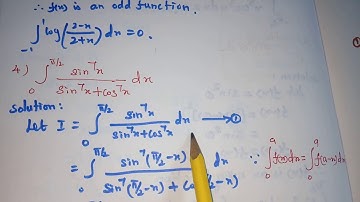 ∴ f(x) is an odd function.
∫₋₁¹ log((2-x)/(2+x)) dx = 0.
4) ∫₀^(π/2) sin⁷x/(sin⁷x+cos⁷x) dx
Solution:
Let I = ∫₀^(π/2) sin⁷x/(sin⁷x+cos⁷x) dx ⟶ ①
= ∫₀^(π/2) sin⁷(π/2-x)/(sin⁷(π/2-x) + cos⁷(π/2-x)) dx ∵ ∫₀^a f(x)dx = ∫₀^a f(a-x)dx